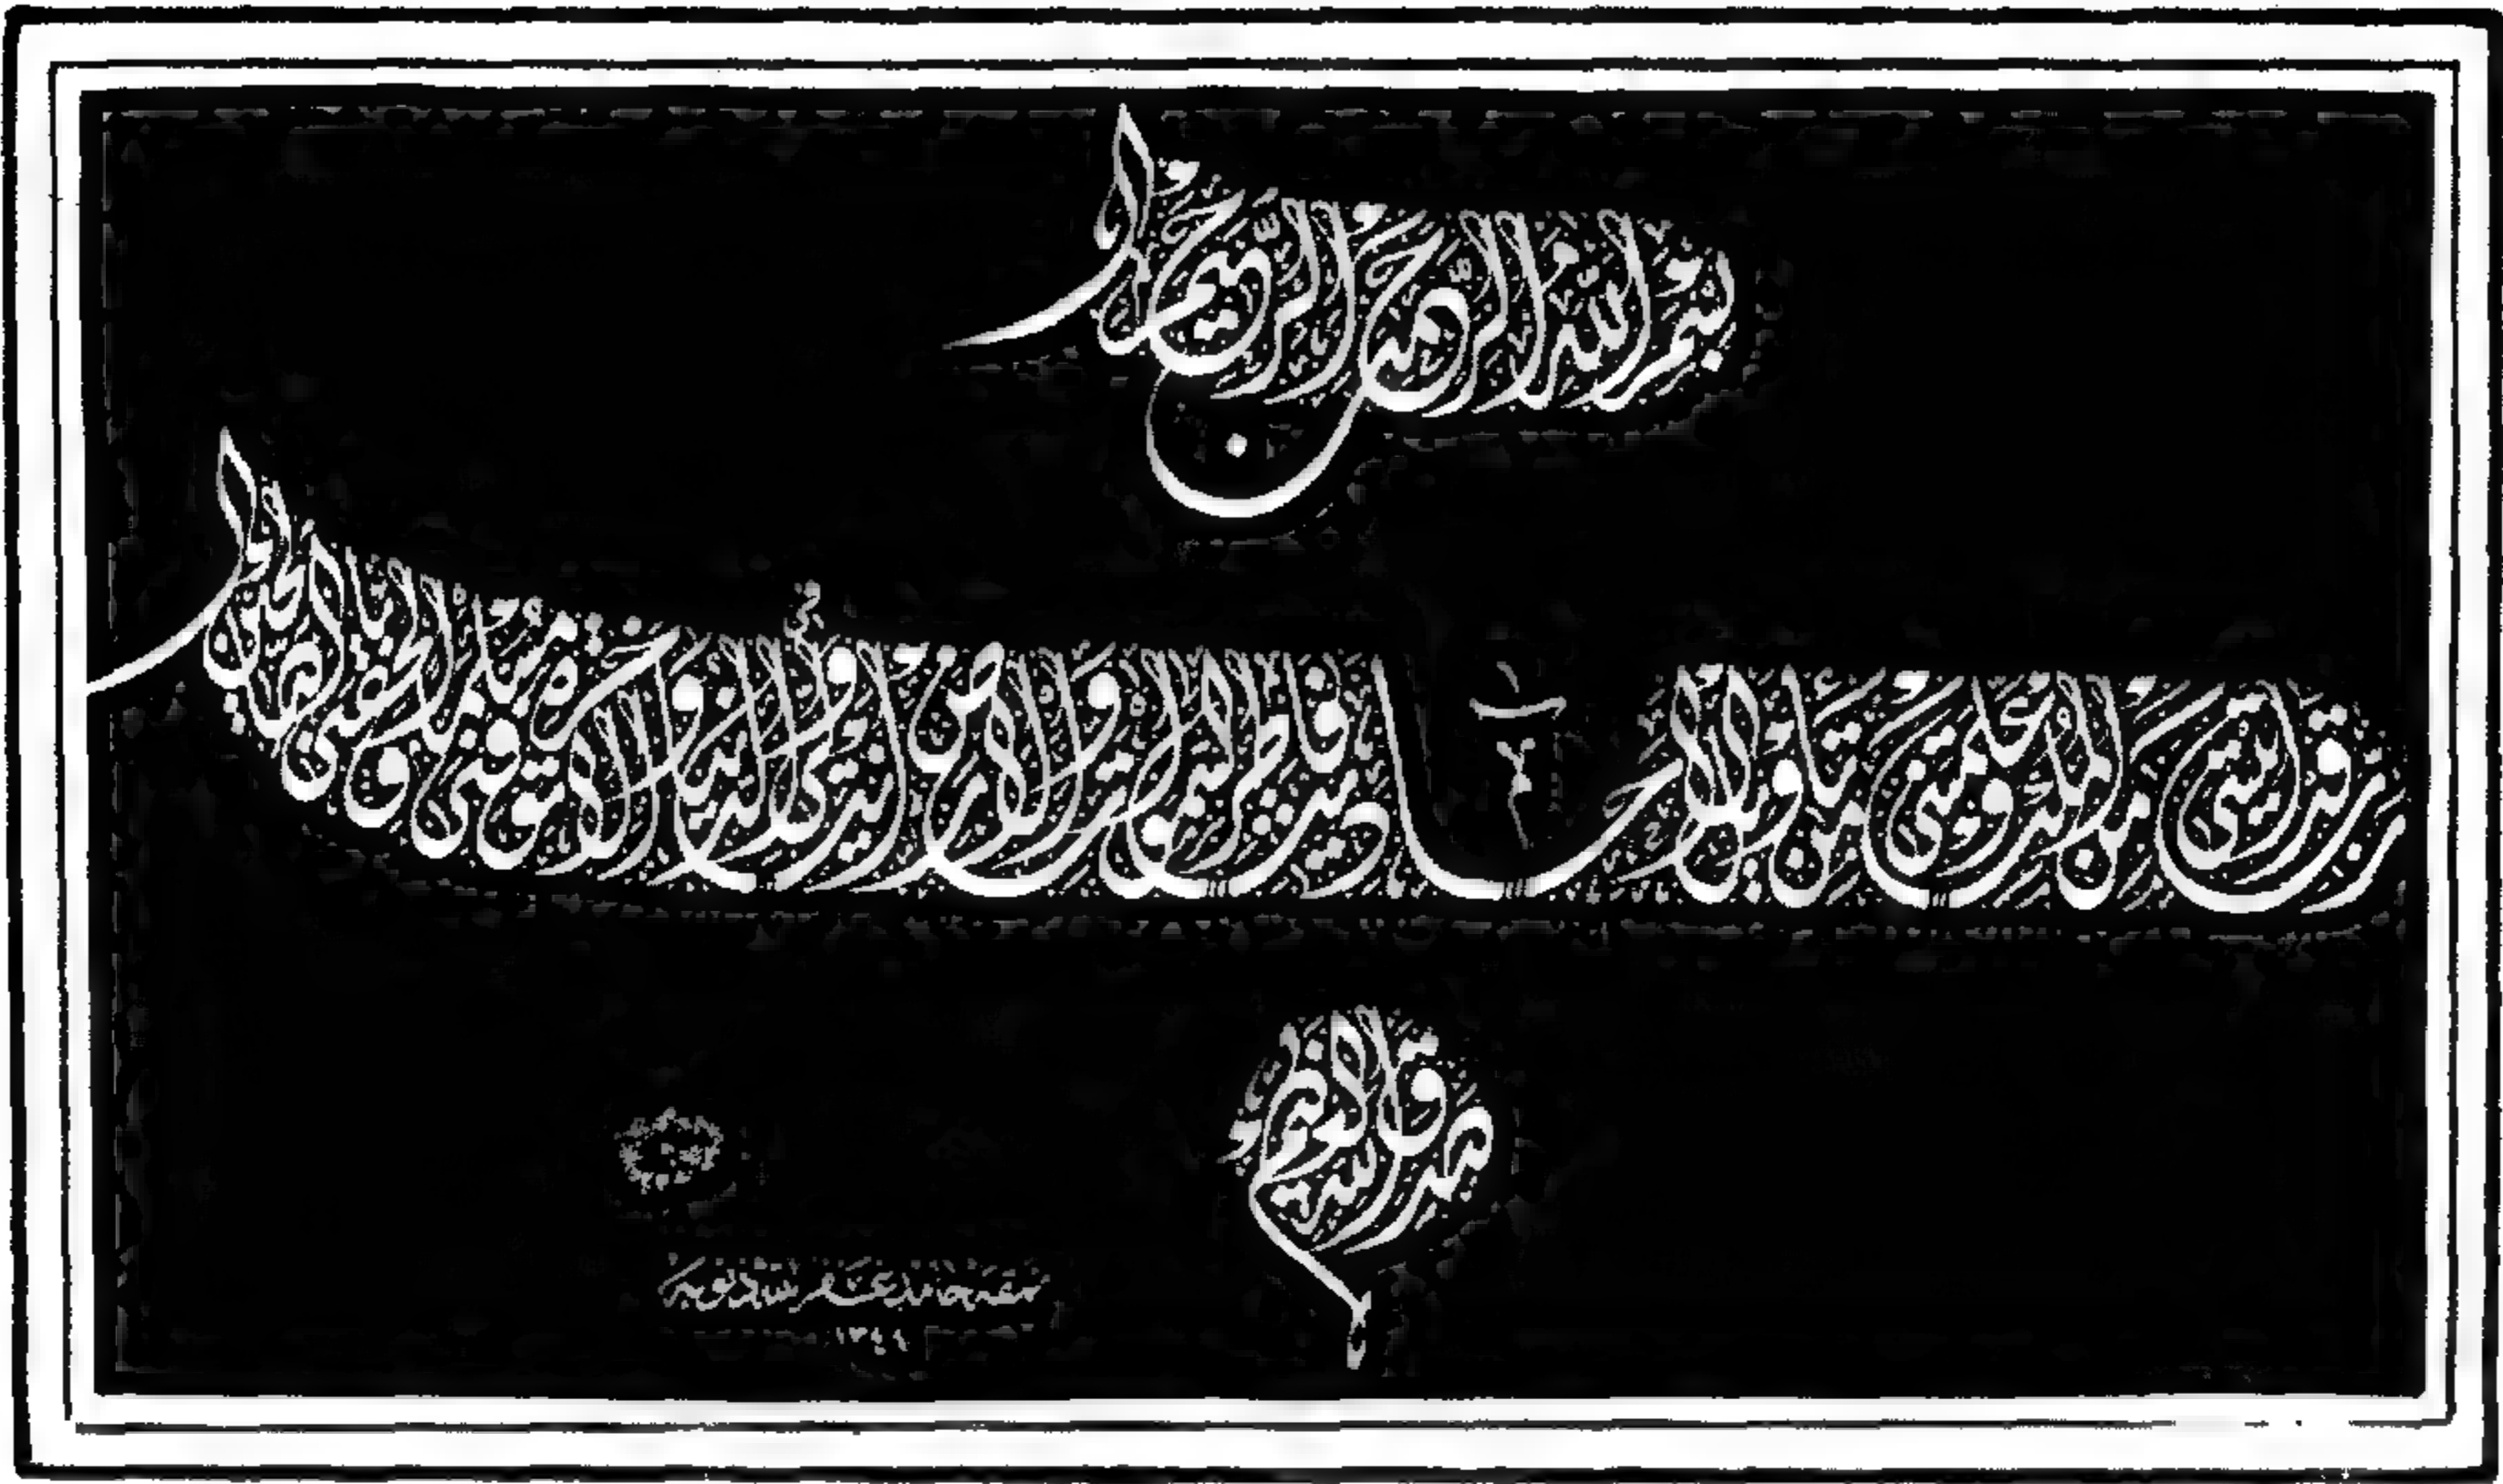 بسم الله الرحمن الرحيم
رب قد آتيتني من الملك وعلمتني من تأويل الأحاديث فاطر السموات والأرض أنت وليي في الدنيا والآخرة توفني مسلما وألحقني بالصالحين
صدق الله العظيم